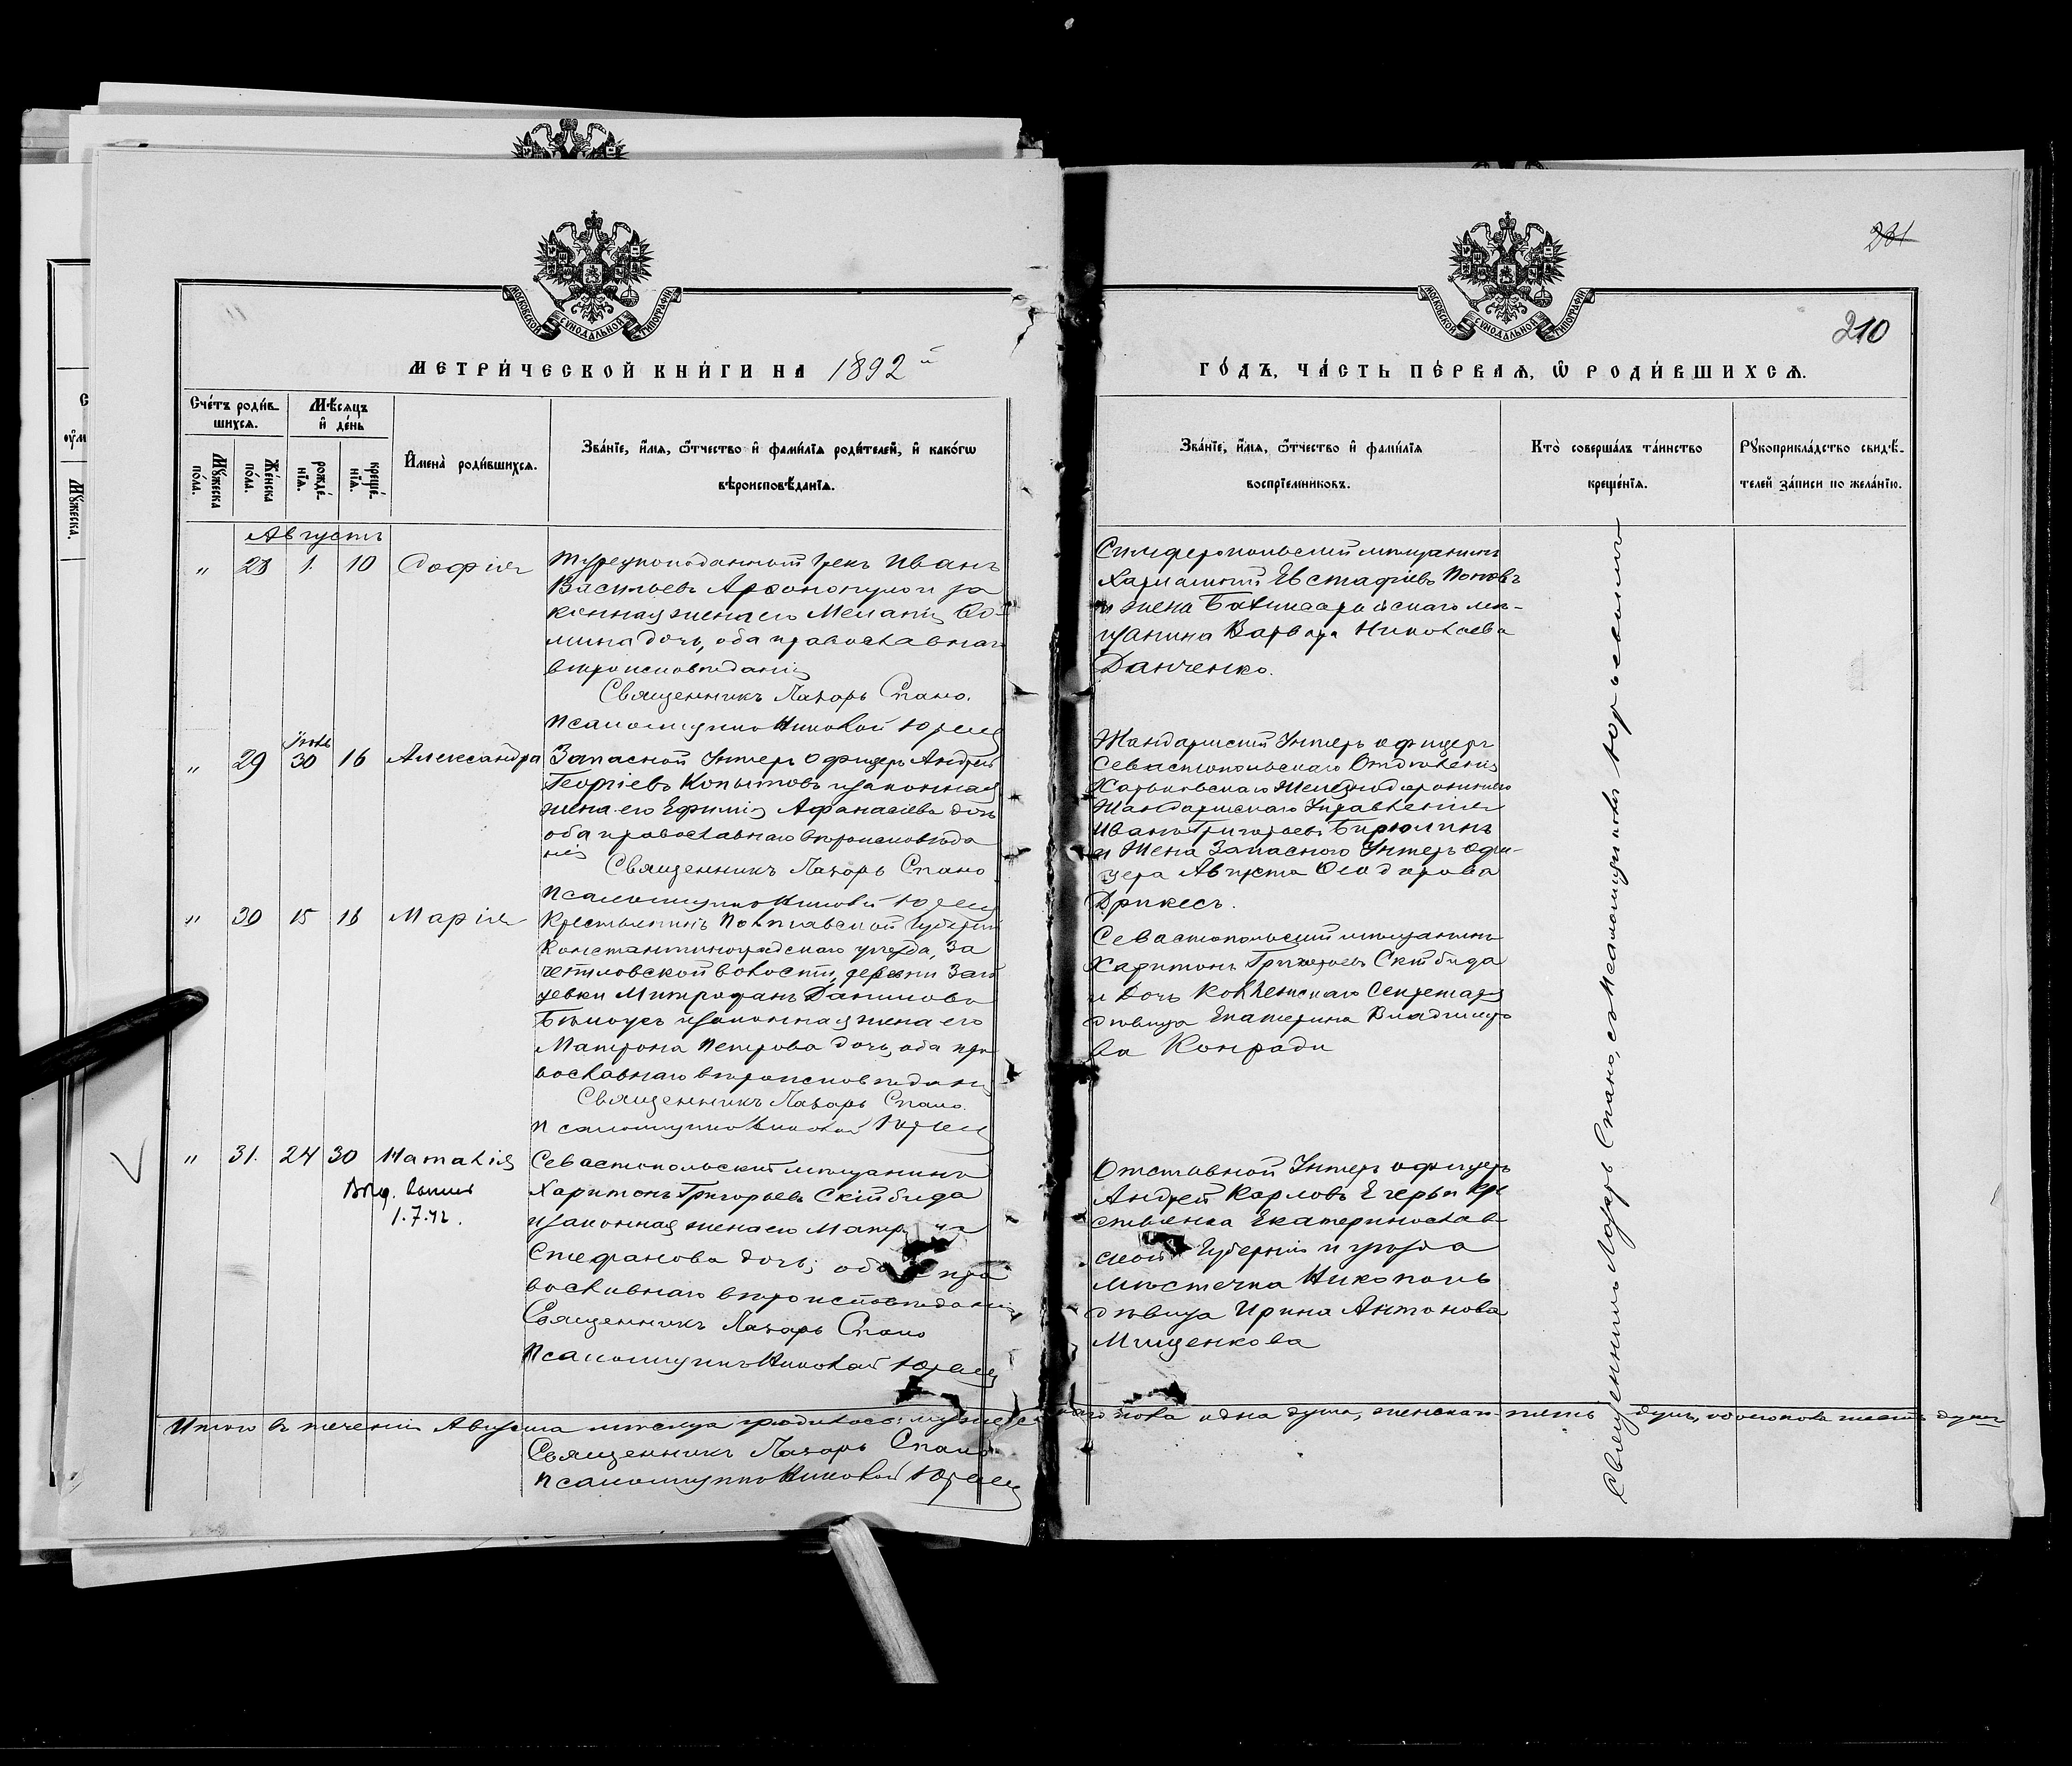 231
210
МОСКОВСКОЙ СѴНОДАЛЬНОЙ ТИПОГРАФІИ
МОСКОВСКОЙ СѴНОДАЛЬНОЙ ТИПОГРАФІИ
МЕТРИ́ЧЕСКОЙ КНИ́ГИ НА 1892й
ГО́ДЪ, ЧА́СТЬ ПЕ́РВАѦ, Ѡ҆ РОДИ́ВШИХСѦ.
Сче́тъ роди́в-
шихсѧ.
Мѣ́сѧцъ
и҆ де́нь
Мꙋ́жеска
по́ла.
Же́нска
по́ла.
рожде́-
нїѧ.
креще́-
нїѧ.
И҆мена̀ роди́вшихсѧ.
Зва́нїе, и҆́мѧ, ѻ҆́тчество и҆ фами́лїѧ роди́телей, и҆ како́гѡ
вѣроисповѣ́данїѧ.
Зва́нїе, и҆́мѧ, ѻ҆́тчество и҆ фами́лїѧ
воспрїе́мниковъ.
Кто̀ соверша́лъ та́инство
креще́нїѧ.
Рꙋкоприкла́дство свидѣ́-
телей за́писи по жела́нїю.
Августъ
" 28 1. 10 Софія
Турецкоподанный Грекъ Иванъ
Васильевъ и за
конная жена его Меланія Ѳо-
мина дочь, оба православнаго
вѣроисповѣданія
Священникъ Лазарь Спано.
Псаломщикъ Николай
Симферопольскій мѣщанинъ
Евстафіевъ Поповъ
и жена Бахчисарайскаго мѣ-
щанина Варвара Николаева
Данченко.
" 29 Іюль 30 16 Александра
Запасной Унтеръ Офицеръ Андрей
Георгіевъ Копытовъ и законная
жена его Ефимія Афанасіева дочь
оба православнаго вѣроисповѣда
нія
Священникъ Лазарь Спано
Псаломщикъ Николай
Жандармскій Унтеръ офицеръ
Севастопольскаго Отдѣленія
Харьковскаго Желѣзнодорожнаго
Жандармскаго Управленія
Иванъ Григорьевъ Бирюлинъ
и Жена Запасного Унтеръ Офи-
цера Августа Ѳеодорова
Дрикесъ.
" 30 15 16 Марія
Крестьянинъ Полтавской Губерніи
Константиноградскаго уѣзда, За
чепиловской волости, деревни
Митрофанъ Даниловъ
Бѣлоусъ и законная жена его
Матрона Петрова дочь, оба пра
вославнаго вѣроисповѣданія
Священникъ Лазарь Спано.
Псаломщикъ Николай
Севастопольскій мѣщанинъ
Харитонъ Григорьевъ Скибида
и Дочь Коллежскаго Секретаря
дѣвица Екатерина Владиміро
ва Конради
" 31. 24 30 Наталія
1.7.42.
Севастопольскій мѣщанинъ
Харитонъ Григорьевъ Скибида
и законная жена его
Стефанова дочь; оба пра
вославнаго вѣроисповѣданія
Священникъ Лазарь Спано
Псаломщикъ Николай
Отставной Унтеръ офицеръ
Андрей Карловъ Егеръ и кре
стьянка Екатеринослав
ской Губерніи и уѣзда
мѣстечка Никополь
дѣвица Ирина Антонова
Мищенкова
Священникъ Лазарь Спано, съ псаломщикомъ
Итого въ теченіи Августа мѣсяца родилось: мужескаго пола одна душа, женскаго пять душъ, обоего пола шесть душъ
Священникъ Лазарь Спано.
Псаломщикъ Николай